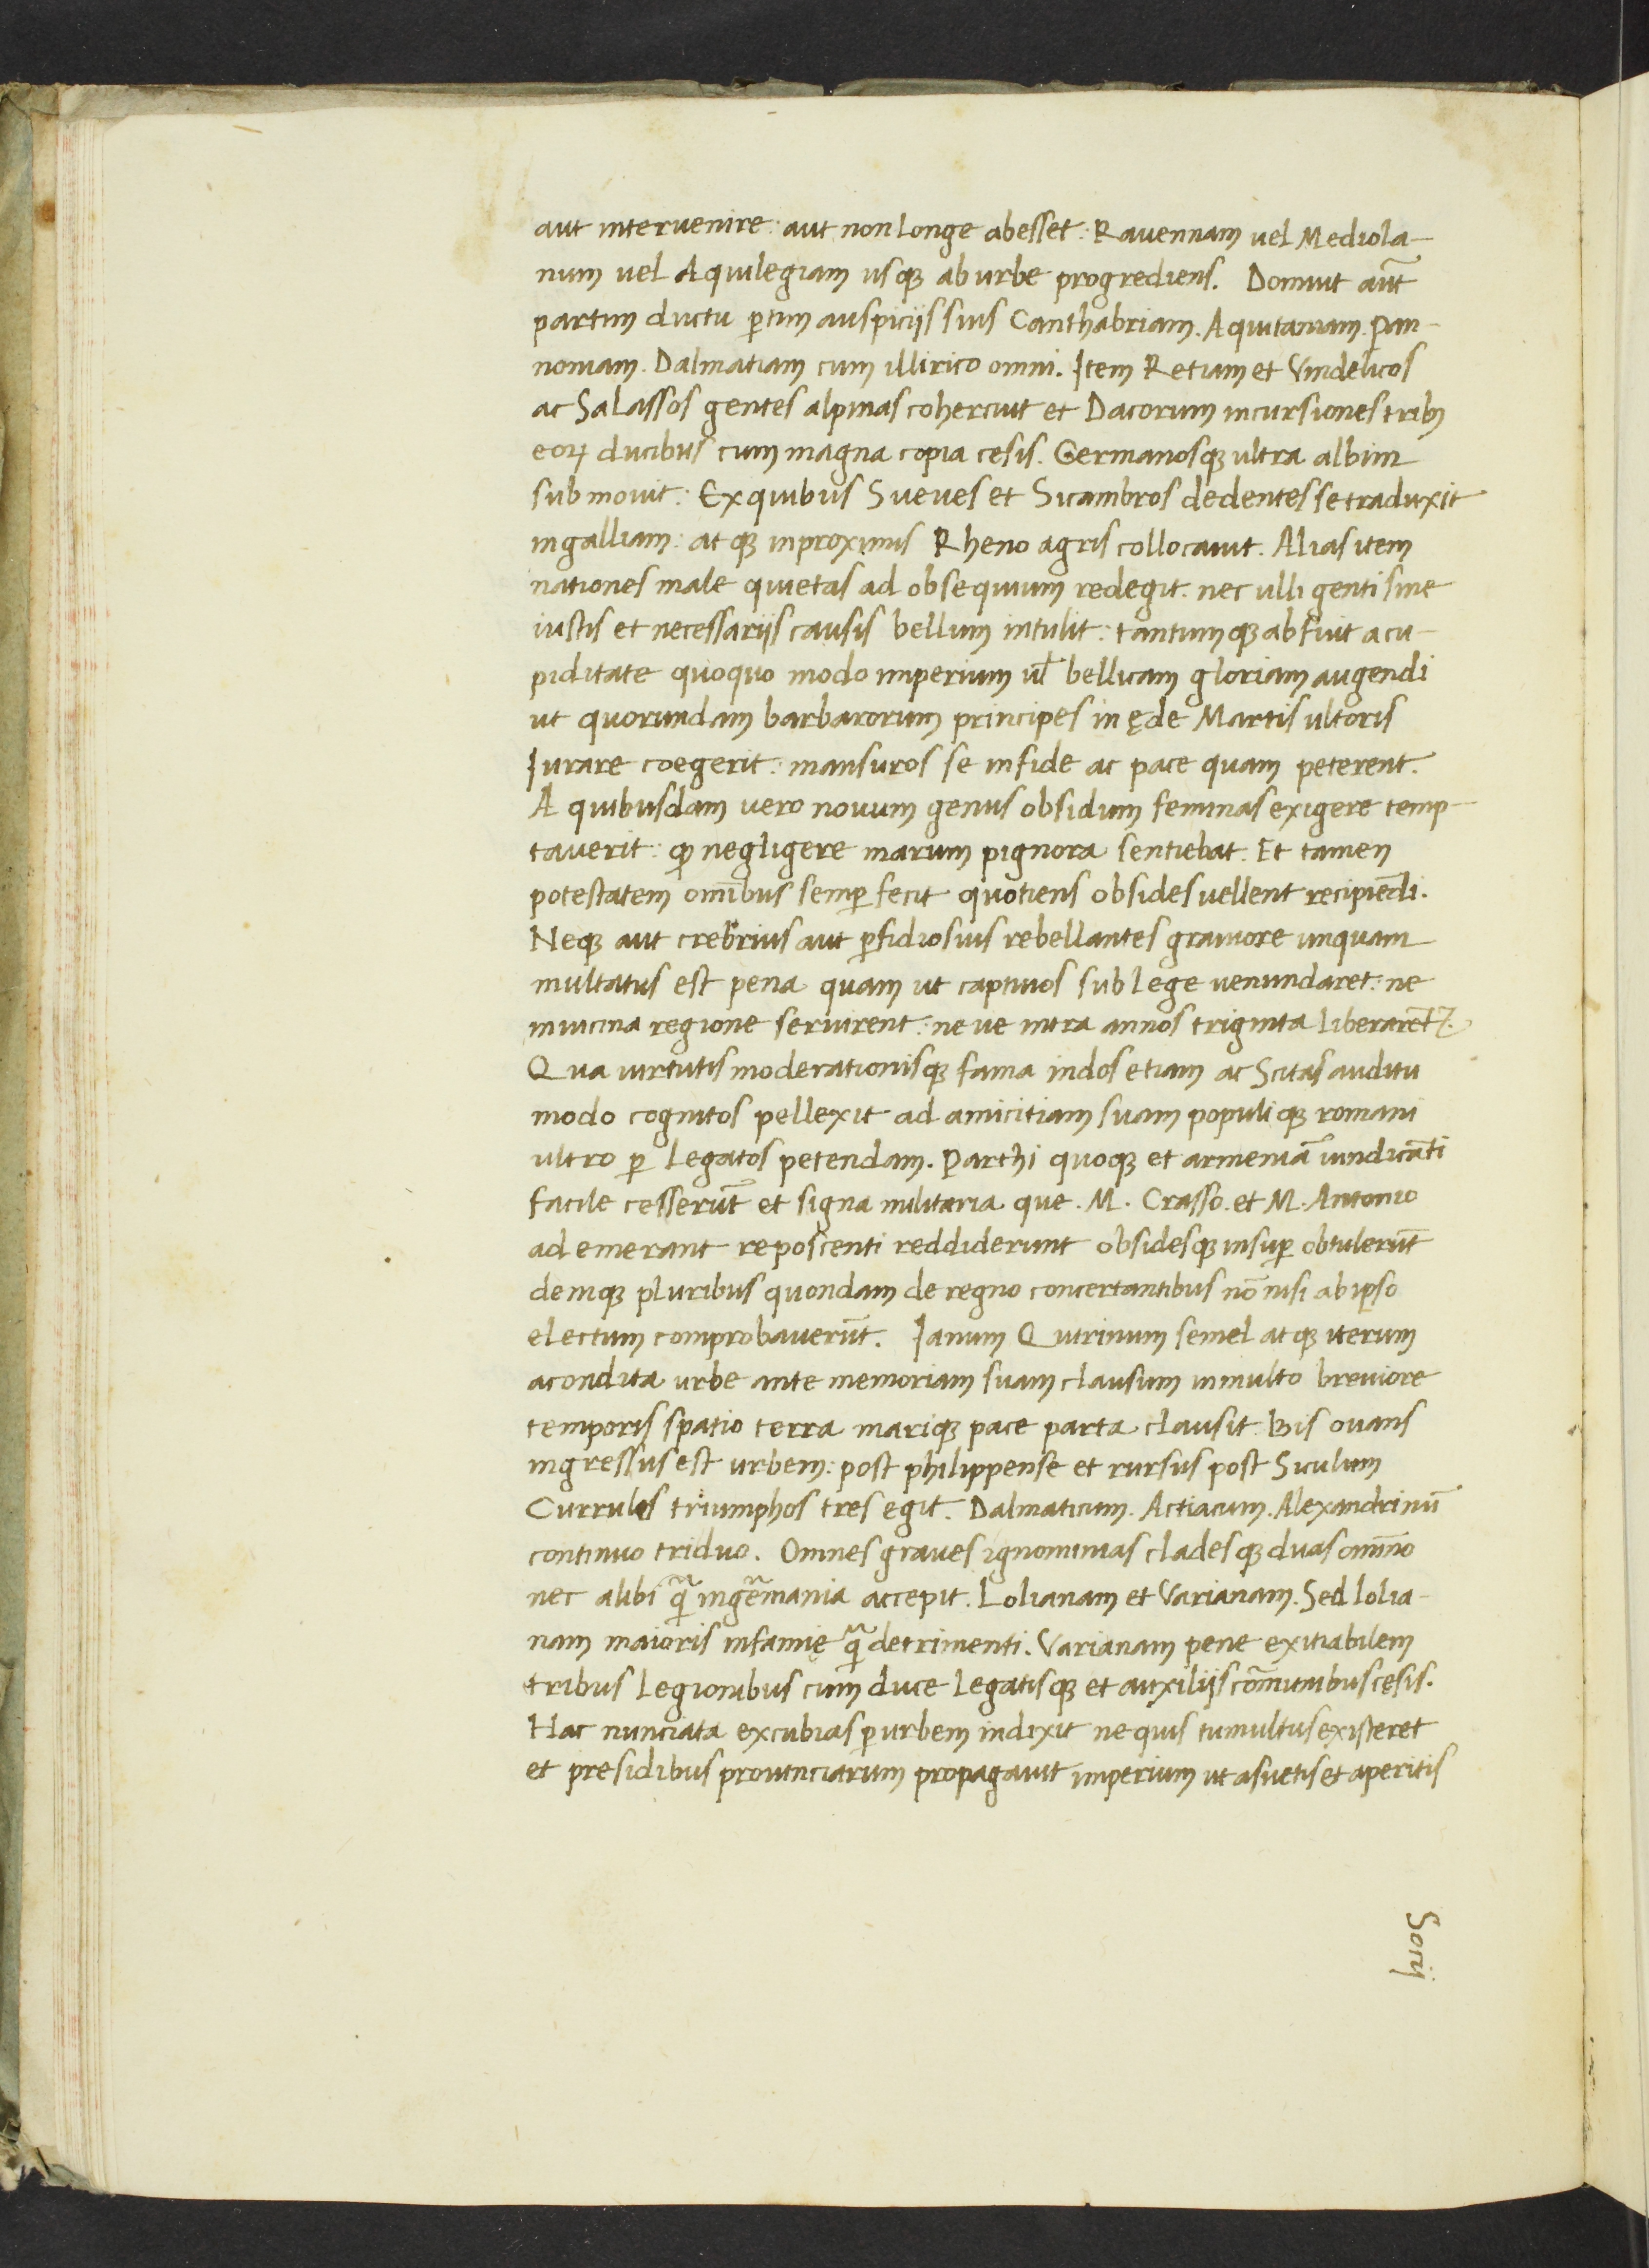 aut intervenire: aut non longe abesset: Ravennam vel Mediola-
num vel Aquilegiam usqꝫ ab urbe progrediens. Domuit aut̄
partim ductu ꝑtim auspiciis suis Canthabriam. Aquitaniam. Pan-
noniam. Dalmatiam cum illirico omni. Item Retiam et Vindelicos
ac Salassos gentes alpinas cohercuit et Dacorum incursiones tribꝫ
eoꝝ ducibus cum magna copia cesis. Germanosqꝫ ultra albim
submovit: Ex quibus Sueves et Sicambros dedentes se traduxit
in galliam: atqꝫ in proximis Rheno agris collocavit. Alias item
nationes male quietas ad obsequium redegit: nec ulli genti sine
iustis et necessariis causis bellum intulit: tantumqꝫ abfuit a cu-
piditate quoquo modo imperium ul̄ bellicam gloriam augendi
ut quorundam barbarorum principes in ęde Martis ultoris
Jurare coegerit: mansuros se in fide ac pace quam peterent.
A quibusdam vero novum genus obsidum feminas exigere temp-
taverit: ꝙ negligere marum pignora sentiebat: Et tamen
potestatem om̄ibus semꝑ fecit quotiens obsides vellent recipiēdi.
Neqꝫ aut crebrius aut ꝑfidiosius rebellantes graviore unquam
multatus est pena quam ut captivos sub lege venundaret: ne
in vicina regione servirent: neve intra annos triginta liberarēt᷑.
Qua virtutis moderationisqꝫ fama indos etiam ac Scitas auditu
modo cognitos pellexit ad amicitiam suam populiqꝫ romani
ultro ꝑ legatos petendam. Parthi quoqꝫ et armeniā vindicāti
facile cesserūt et signa militaria que. M. Crasso. et M. Antonio
ademerant reposcenti reddiderunt obsidesqꝫ insuꝑ obtulerūt
deniqꝫ pluribus quondam de regno concertantibus nō nisi ab ipso
electum comprobaverūt. Janum Quirinum semel atqꝫ iterum
a condita urbe ante memoriam suam clausum in multo breviore
temporis spatio terra mariqꝫ pace parta clausit: Bis ovans
ingressus est urbem: post philippense et rursus post Siculum
Currules triumphos tres egit. Dalmaticum. Actiacum. Alexandrinū
continuo triduo. Omnes graves ignominias cladesqꝫ duas om̄ino
nec alibi q̄ in gēmania accepit. Lolianam et Varianam. Sed lolia-
nam maioris infamię q̄ detrimenti. Varianam pene exitiabilem
tribus legionibus cum duce legatisqꝫ et auxiliis cōmunibus cęsis.
Hac nunciata excubias ꝑ urbem indixit ne quis tumultus existeret
et presidibus provinciarum propagavit imperium ut asuetis et aperitis
Sorij